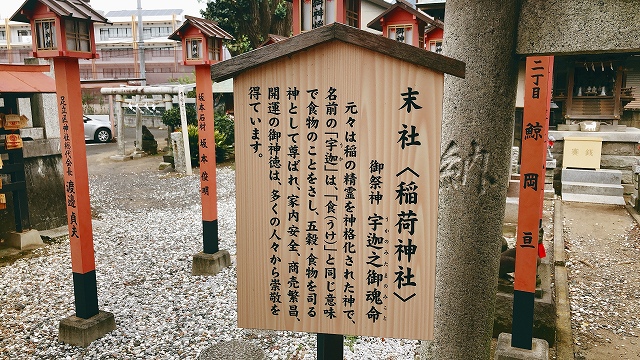 末社〈稲荷神社〉
御祭神 宇迦之御魂命
うかのみたまのみこと
元々は稲の精霊を神格化された神で、
名前の「宇迦」は、「食(うけ)」と同じ意味
で食物のことをさし、五穀・食物を司る
神として尊ばれ、家内安全、商売繁昌、
開運の御神徳は、多くの人々から崇敬を
得ています。
足立区小台神社総代会長 渡邉貞夫
坂本石材 坂本俊明
二丁目 鯨岡亘
納